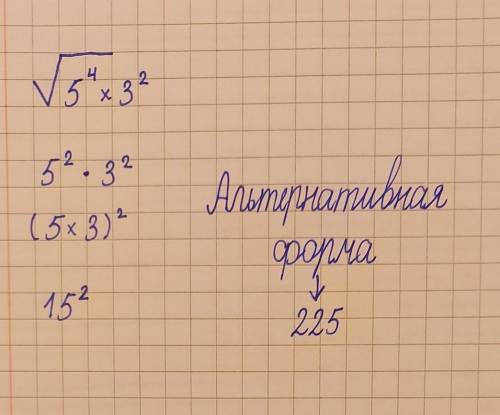 √5⁴ × 3²
5² · 3²
(5 × 3)²
15²
Альтернативная
форма
↓
225